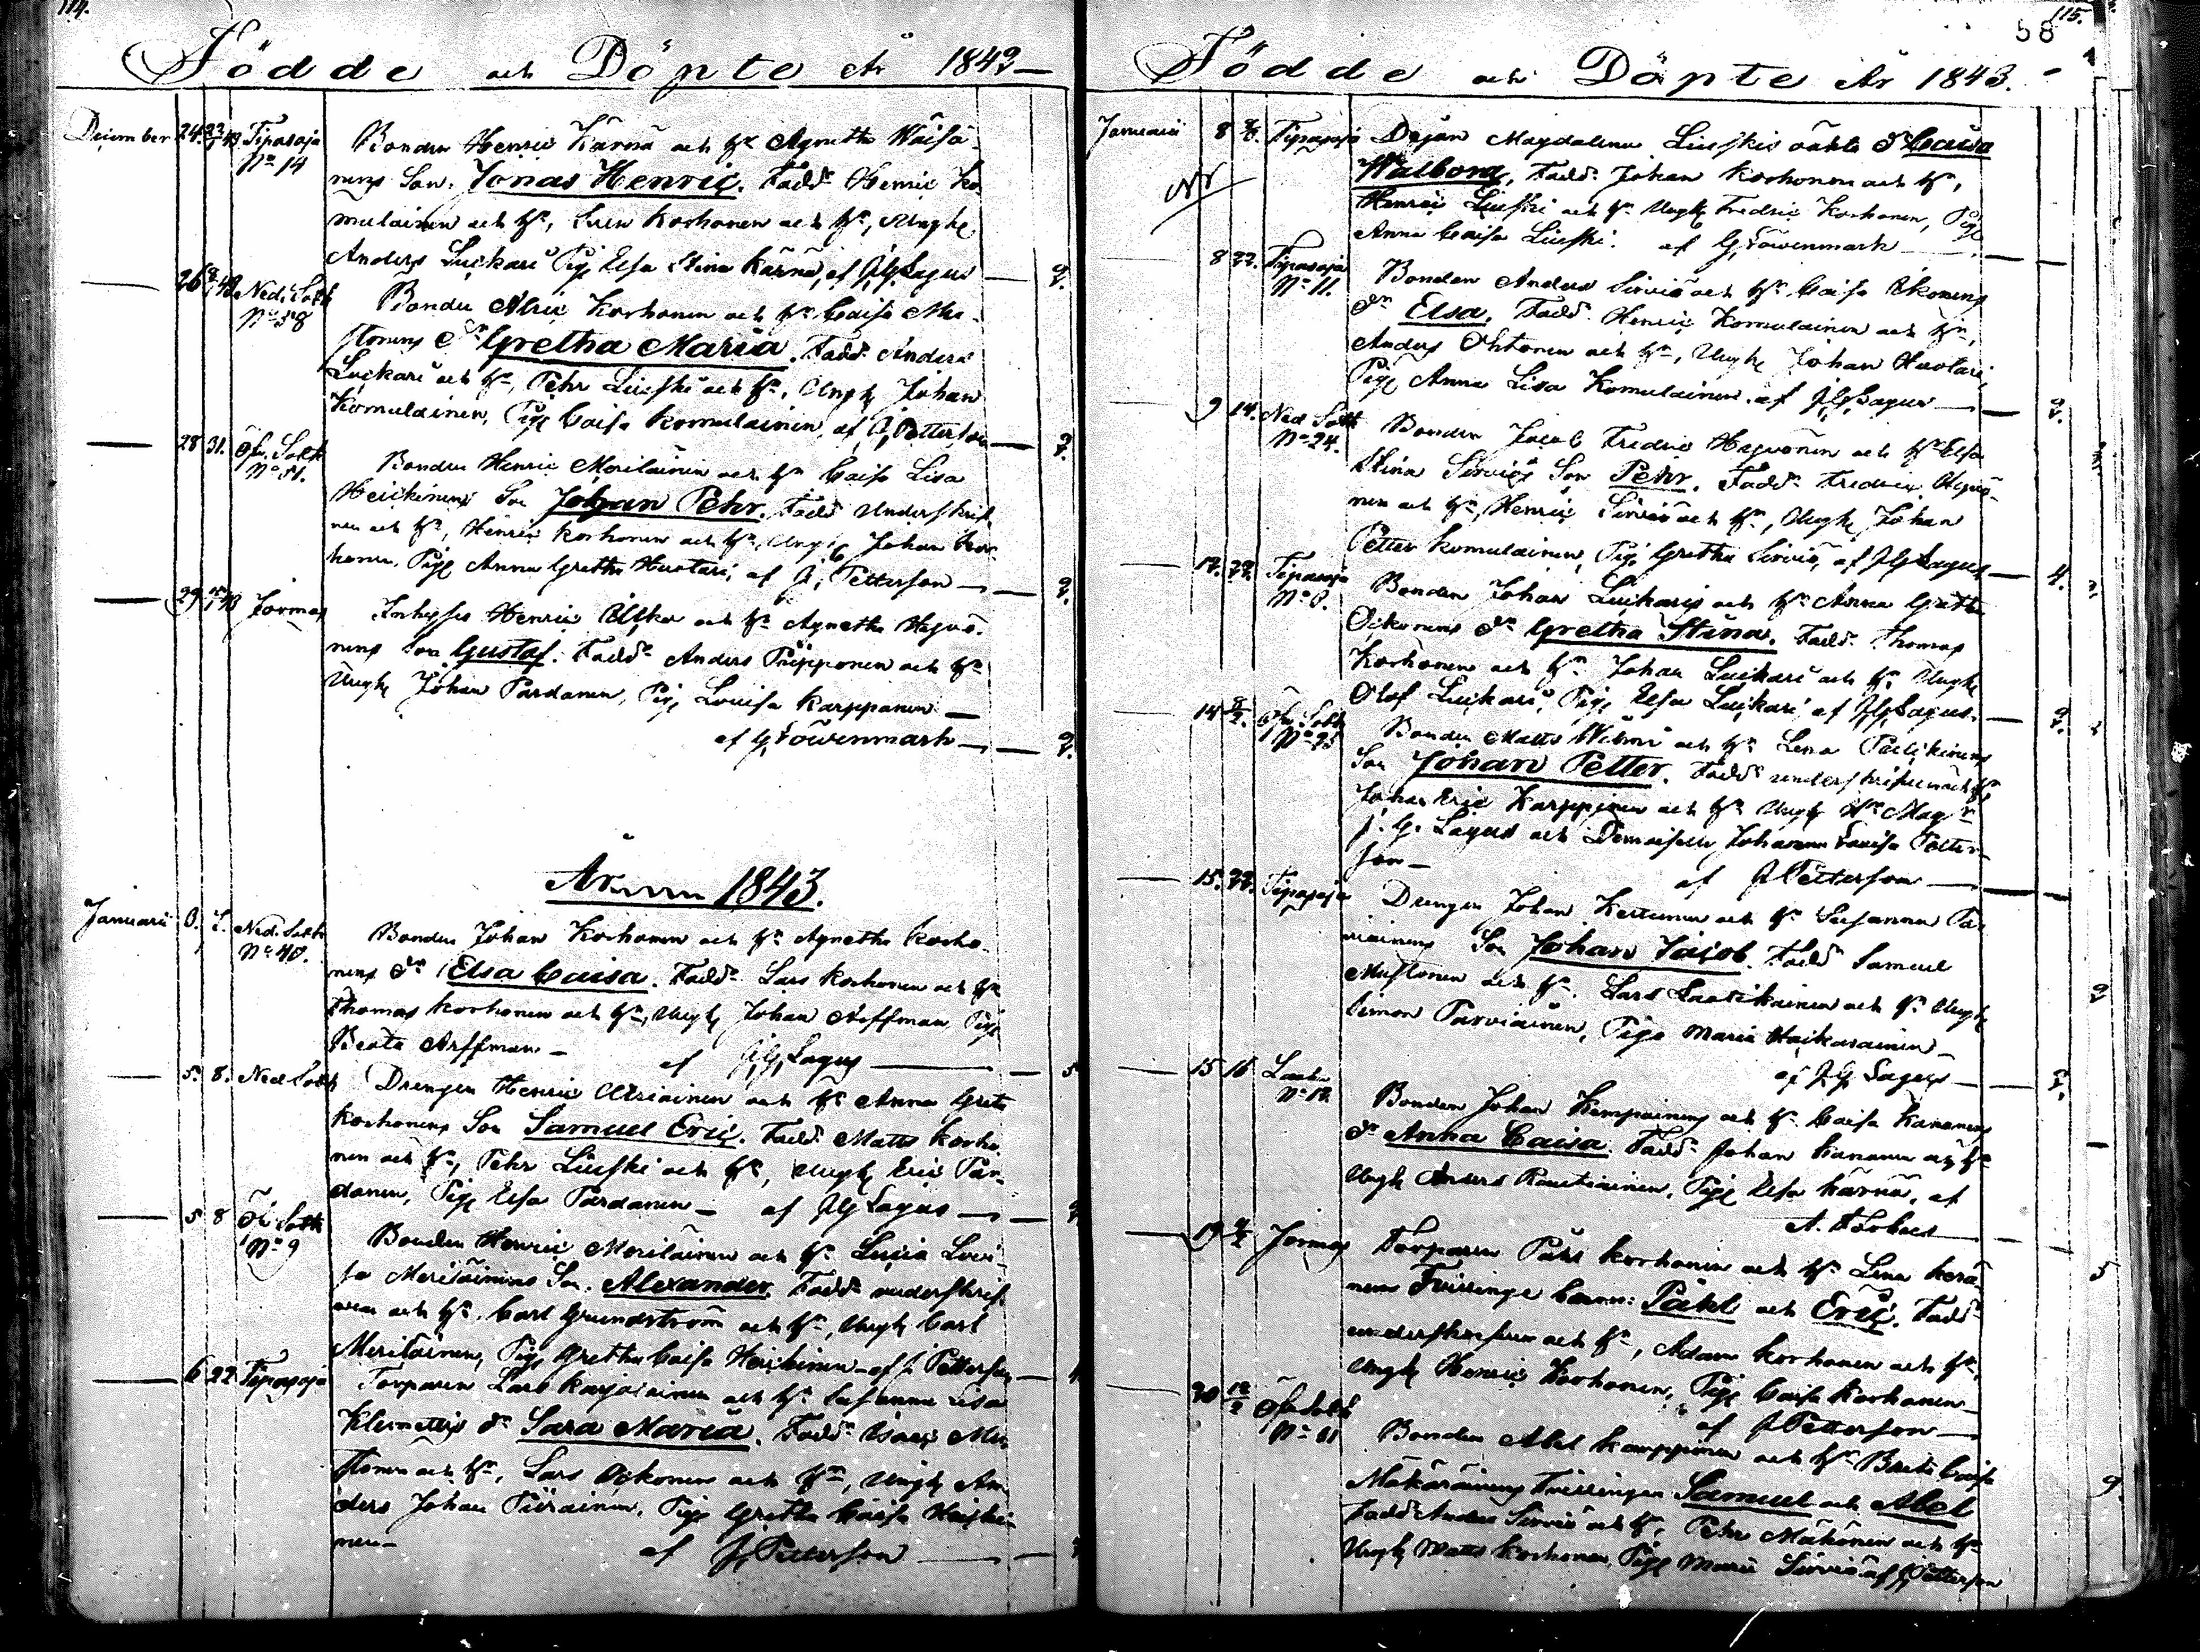 114.
Födde och Döpte År 1842
December 24. 22/1 43 Tipasoja Bonden Henric Kärnä och h. Agneta Wäisä-
No 14 nens Son, Jonas Henric. Fadd. Henric Ko
mulainen och h., Sven Korhonen och h., Yngl.
Anders Luckari Pig. Elsa Stina Kärnä, af J. G. Lagus
26 Ned. Sotk. Bonden Korhonen och h. Caisa Mu-
No 38 stonens Dr Gretha Maria. Fadd. Anders
Luckari och h., Pehr Liuski och h., Yngl. Johan
Komulainen, Pig. Caisa Komulainen, af J. Petterson
28 31. Öf. Sotk. Bonden Henric Meriläinen och h. Caisa Lisa
No 31. Heickinens Son Johan Pehr. Fadd. Underskrif
nen och h., Henric Korhonen och h., Yngl. Johan Kor
honen, Pig. Anna Gretha Huotari, af J. Petterson
29 Jormas Inhyses Henric och h. Agnetha
nens Son Gustaf. Fadd. Anders Piipponen och h.
Yngl. Johan Pardanen, Pig. Lovisa Karppanen
af G. Löwenmark
Årum 1843.
Januarii 7. Ned. Sotk. Bonden Johan Korhonen och h. Agnetha Korho-
No 40. nens Dr Elsa Caisa. Fadd. Lars Korhonen och h.
Thomas Korhonen och h., Yngl. Johan Arffman, Pig.
Beata Arffman
af J. G. Lagus
5. 8. Ned. Sotk. Drengen Henric och h. Anna Greta
Korhonens Son Samuel Eric. Fadd. Matts Korho
nen och h., Pehr Liuski och h., Yngl. Eric Par-
danen, Pig. Elsa Pardanen af J. G. Lagus
5 8 Öf. Sotk. Bonden Henric Meriläinen och h. Lucia Lovi-
No 9 sa Meriläinens Son. Alexander. Fadd. underskrif
ven och h. Carl Grundström och h., Yngl. Carl
Meriläinen, Pig. Gretha Caisa Heickinen af J. Petterson
6 22 Tipasoja Torparen Lars Karjalainen och h. Susanna Lisa
Klemettis Dr Sara Maria. Fadd. Isaac Mu
stonen och h., Lars Ockonen och h., Yngl. An
ders Johan Piirainen, Pig. Gretha Caisa Heicki-
nen
af J. Petterson
115.
58
Födde och Döpte År 1843.
Januarii 8 Tipasoja Dejan Magdalena Liuskis oäkta Dr Caisa
Walborg, Fadd. Johan Korhonen och h.,
Henric Liuski och h. Yngl. Fredric Korhonen, Pig.
Anna Caisa Liuski. af G. Löwenmark
8 22. Tipasoja Bonden Anders Sirviö och h. Caisa Ökonens
No 11. Dr Elsa. Fadd. Henric Komulainen och h.,
Anders Ohtonen och h., Yngl. Johan Huotari,
Pig. Anna Lisa Komulainen, af J. G. Lagus
9 14. Ned. Sotk. Bonden Jacob Fredric och h. Elsa
No 24. Stina Sirviös Son Pehr. Fadd. Fredric
nen och h., Henric Sirviö och h., Yngl. Johan
Petter Komulainen, Pig. Gretha Sirviö, af J. G. Lagus
Tipasoja Bonden Johan Luckaris och h. Anna Gretha
Ockonens Dr Gretha Stina. Fadd. Thomas
Korhonen och h. Johan Luckari och h. Yngl.
Olof Luckari, Pig. Elsa Luckari af J. G. Lagus
14 Öf. Sotk. Bonden Matts och h. Lena
Son Johan Petter. Fadd. underskrifven och h.
Johan Eric Karppinen och h. Yngl. Hr Magr
J. G. Lagus och Demoiselle Johanna Lovisa Petter-
son
af J. Petterson
15. 22. Tipasoja Drengen Johan Kertunen och h. Susanna Par
viainens Son Johan Jacob. Fadd. Samuel
Mustonen och h. Lars Laatikainen och h. Yngl.
Simon Parviainen, Piga Maria Haikarainen
af J. G. Lagus
15 16 Bonden Johan Kemppainens och h. Caisa Kananens
Dr Anna Caisa. Fadd. Johan Kananen och h.
Yngl. Anders Rautiainen, Pig. Elsa Kärnä, af
19 Jormas Torparen Påhl Korhonen och h. Lena Kerä-
nens Tvillinge barn: Påhl och Eric. Fadd.
underskrifven och h., Adam Korhonen och h.,
Yngl. Henric Korhonen, Pig. Caisa Korhonen
af J. Petterson
Öf. Sotk. Bonden Abel Karppinen och h. Brita Caisa
Mäkäräinens Tvillingar Samuel och Abel
Fadd. Anders Sirviö och h., Pehr och h.
Yngl. Matts Korhonen, Pig. Maria Sirviö af J. Petterson